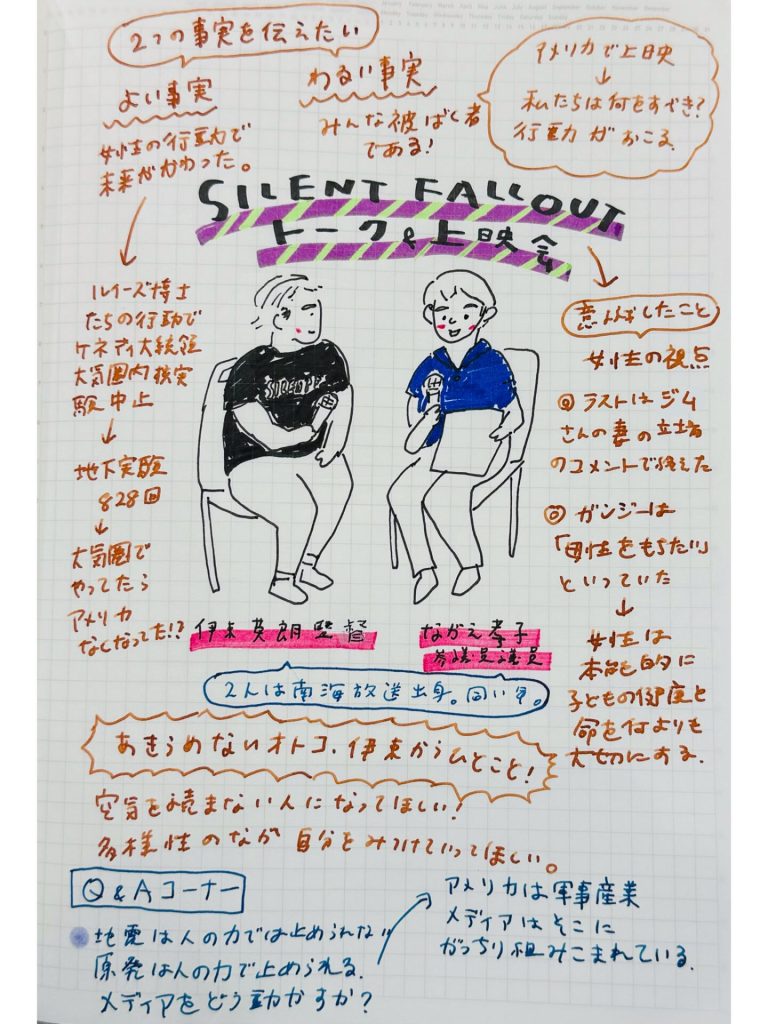 2つの事実を伝えたい
よい事実
女性の行動で
未来がかわった。
わるい事実
みんな被ばく者
である!
アメリカで上映
↓
私たちは何をすべき?
行動がおこる
SILENT FALLOUT
トーク&上映会
ルイーズ博士
たちの行動で
ケネディ大統領
大気圏内核実
験中止
↓
地下実験
828回
↓
大気圏で
やってたら
アメリカ
なくなってた!?
意んばしたこと
女性の視点
◎ ラストはジム
さんの妻の立場
のコメントで終えた
◎ ガンジーは
「母性をもちたい」
といっていた
↓
女性は
本能的に
子どもの健康と
命を何よりも
大切にする.
伊東英朗監督
ながえ孝子
参議員議員
2人は南海放送出身。同い年。
あきらめないオトコ、伊東からひとこと!
空気を読まない人になってほしい!
多様性のなか自分をみつけていってほしい。
Q&Aコーナー
地震は人の力では止められない
原発は人の力で止められる.
メディアをどう動かすか?
アメリカは軍事産業
メディアはそこに
がっちり組みこまれている.